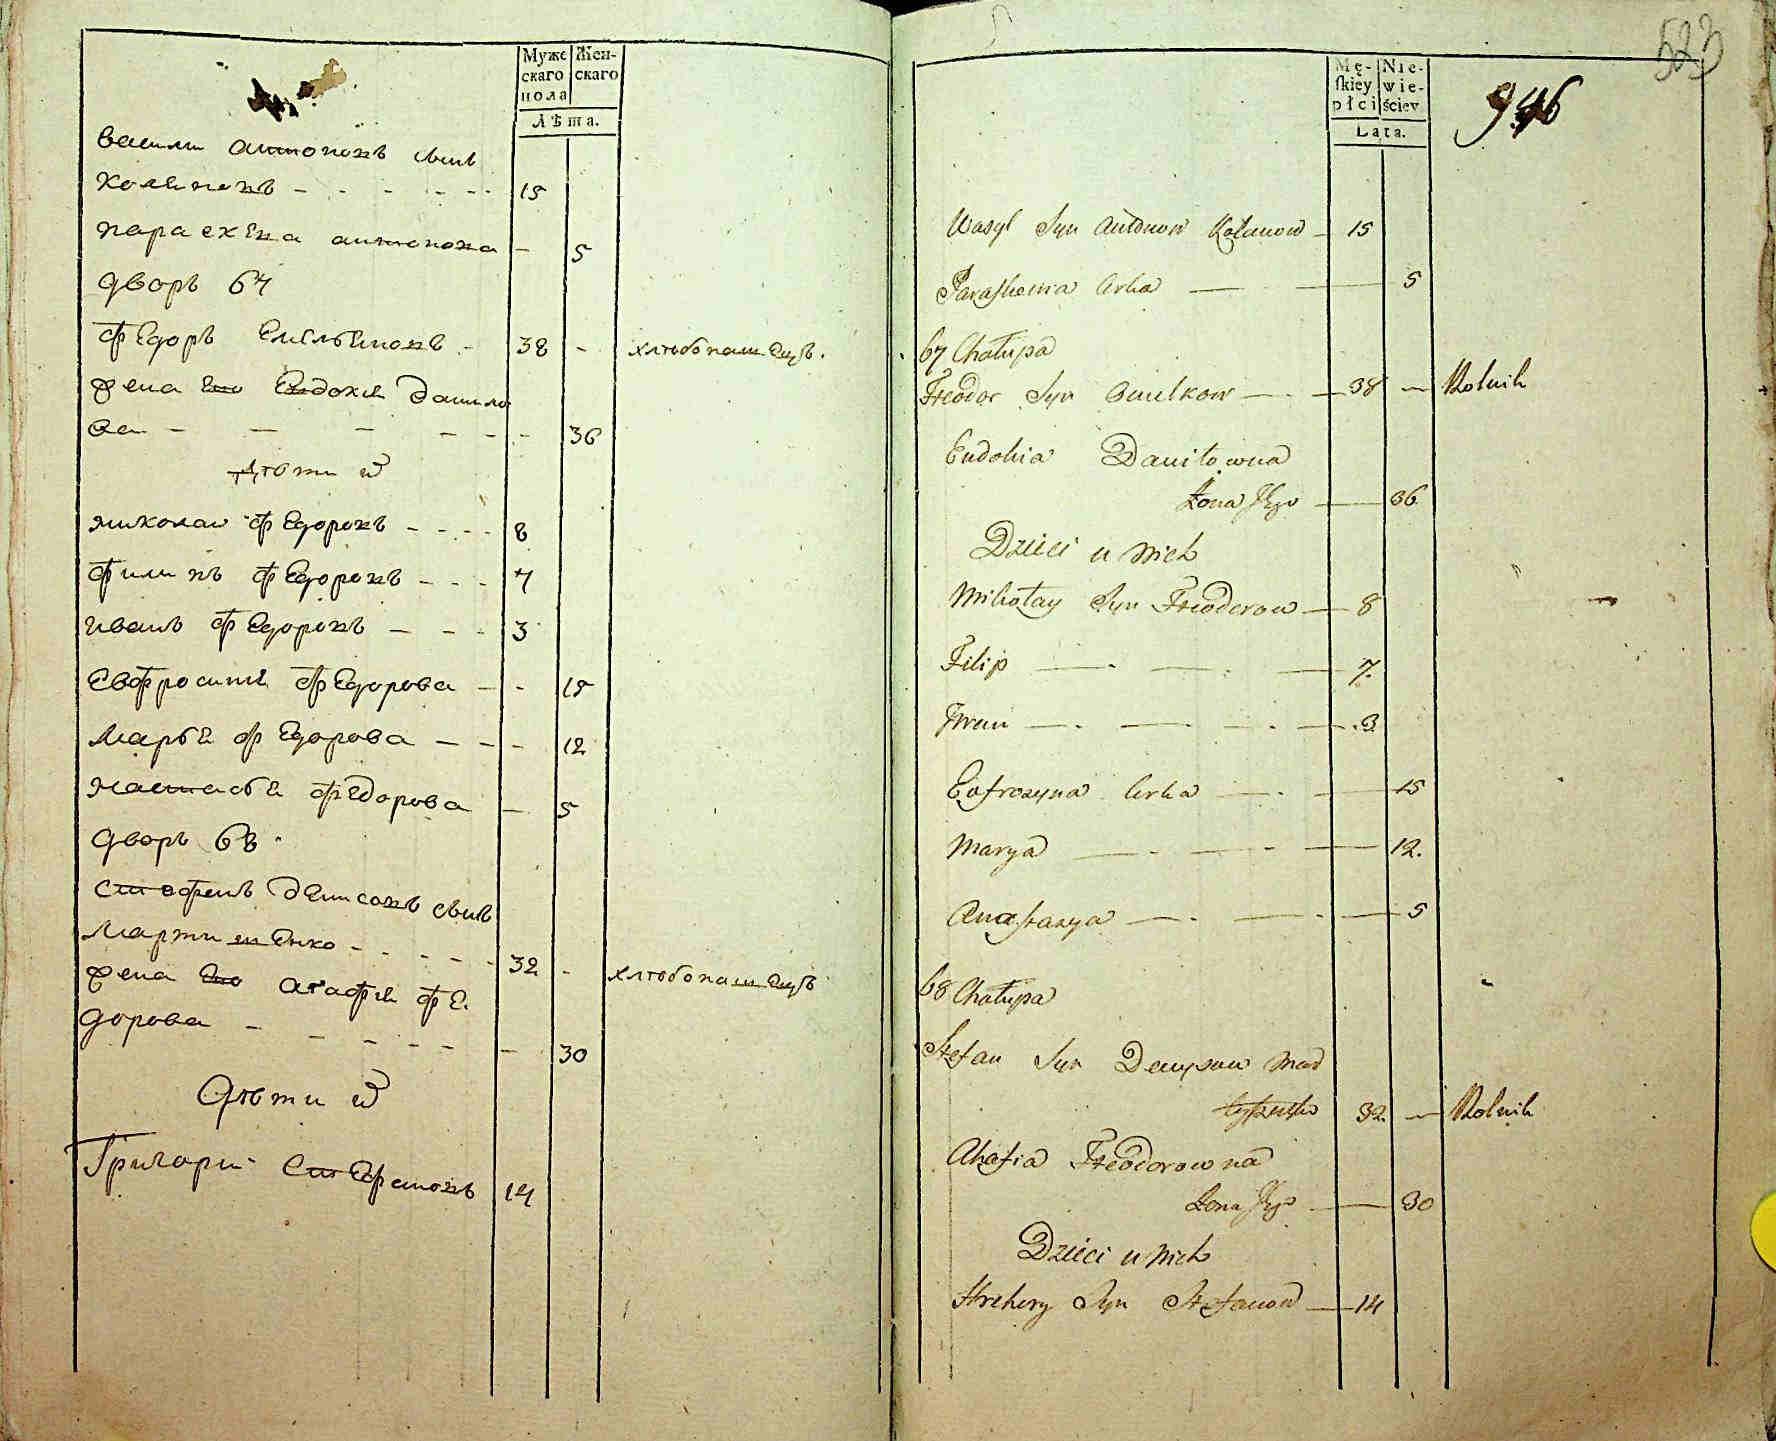 Муже
скаго
пола
Жен-
скаго
Лѣта.
васили антоновъ сынъ
колѣновъ - - - - - 15
параскева антонова - 5
дворъ 67
федоръ емельяновъ - 38 - хлѣбопашецъ.
жена его евдокия данило
ва - - - - - - 36
дѣти их
миколаи федоровъ - - - - 8
филипъ федоровъ - - - 7
иванъ федоровъ - - - 3
евфросиния федорова - - 15
марья федорова - - - 12
настасья федорова - 5
дворъ 68.
стефенъ денисовъ сынъ
мартишенко - - - - - 32 - хлѣбопашецъ
жена его агафия фе.
дорова - - - - - - 30
дѣти их
Григори стефановъ 14
523
946
Mę-
skiey
płci
Nie-
wie-
ściey
Lata.
Wasyl Syn Antonow Kolanow - 15
Paraskewia Crka — — 5
67 Chałupa
Fteodor Syn Omelkow — - — 38 — Rolnik
Eudokia Daniłowna
Żona Jego — 36
Dzieci u Nich
Mikołay Syn Fteodorow — 8
Filip — - — - — 7.
Iwan — - — - — - — 3
Eufrozyna Crka — - — 15
Marya — - — - — 12.
Anastazya — - — - — 5
68 Chałupa
Stefan Syn Denysow Mar
32. — Rolnik
Ahafia Fteodorowna
Żona Jego — 30
Dzieci u Nich
Hrehory Syn Stefanow — 14